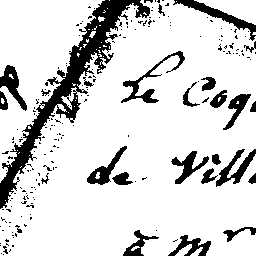 Le Coq
de Vill
à Mr